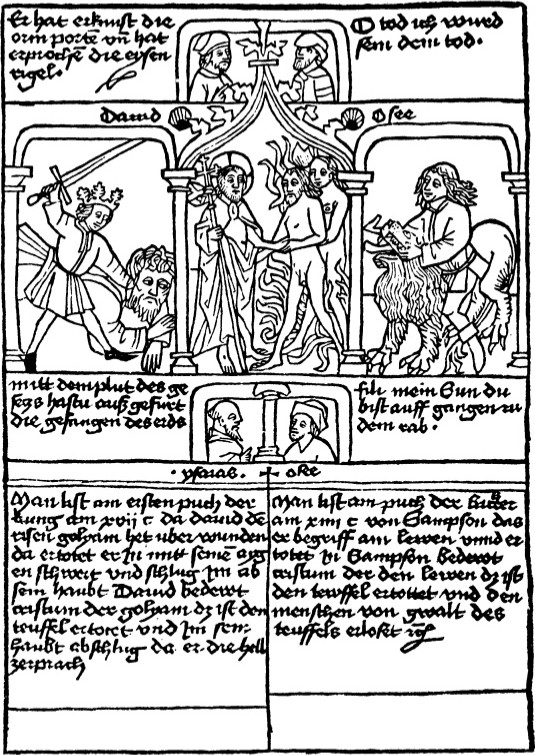 Er hat erknist die
orin porte vn̄ hat
erprochē die eysen
rigel.
O tod ich wurd
sein dem tod.
Dauid
Osee
mitt dem plut des ge
secz hastu auß gefurt
die gefangen des erds
fili mein Sun du
bist auff gangen zu
dem rab.
ysaias
oke
Man list am ersten puch der
kung am xvii c da dauid dē
risen golyam het uber wunden
da ertotet er In mitt seinē ayg
en schwert vnd schlug Im ab
sein haubt Dauid bedewt
cristum der golyam dz ist den
teuffel ertotet vnd Im sein
haubt abschlug da er die hell
zerprach
Man list am puch der Richter
am xiiii c von Sampson das
er begriff am lewen vnnd er
totet In Sampson bedewt
cristum der den lewen dz ist
den tewffel ertottet vnd den
menschen von gwalt des
teuffels erloset